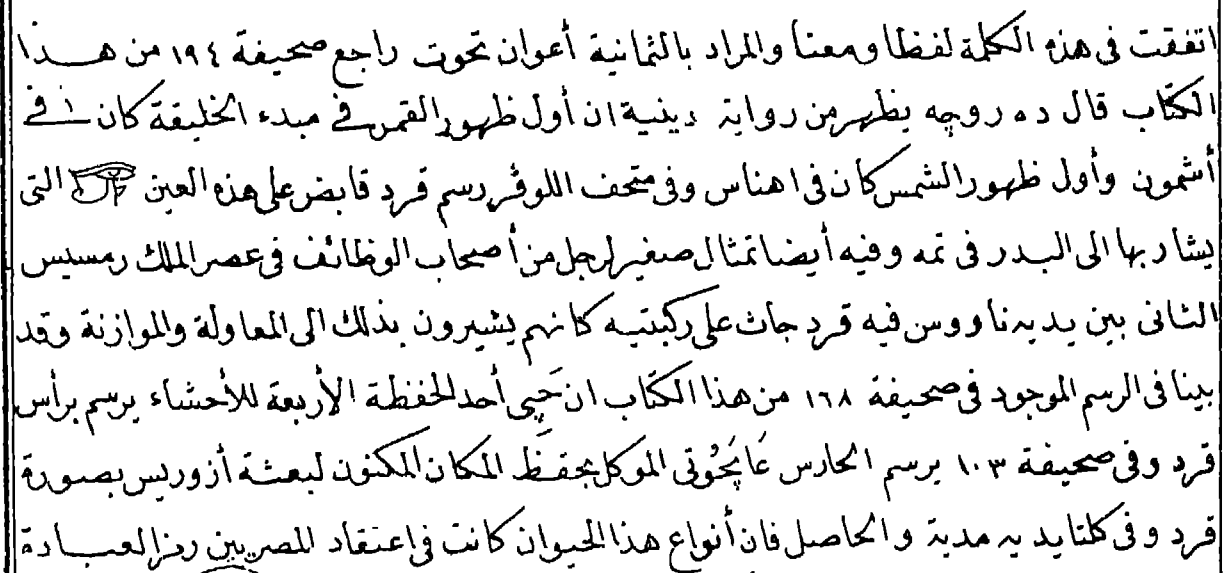 اتفقت فى هذه الكلمة لفظا ومعنا والمراد بالثمانية أعوان تحوت راجع صحيفة ١٩٤ من هــذا
الكتاب قال ده روچه يظهر من رواية دينية ان أول ظهور القمر فى مبدء الخليقة كان فى
أشمون وأول ظهور الشمس كان فى اهناس وفى متحف اللوفر رسم قرد قابض على هذه العين 𓂀 التى
يشار بها الى البدر فى تمه وفيه أيضا تمثال صغير لرجل من أصحاب الوظائف فى عصر الملك رمسيس
الثانى بين يديه ناووس فيه قرد جاث على ركبتيه كانهم يشيرون بذلك الى المعاولة والموازنة وقد
بينا فى الرسم الموجود فى صحيفة ١٦٨ من هذا الكتاب ان حَپى أحد الحفظة الأربعة للأحشاء يرسم برأس
قرد وفى صحيفة ١٠٣ يرسم الحارس الموكل بحفظ المكان المكنون لبعثة أزوريس بصورة
قرد وفى كلتا يديه مدية والحاصل فان أنواع هذا الحيوان كانت فى اعتقاد المصريين رمز العبادة